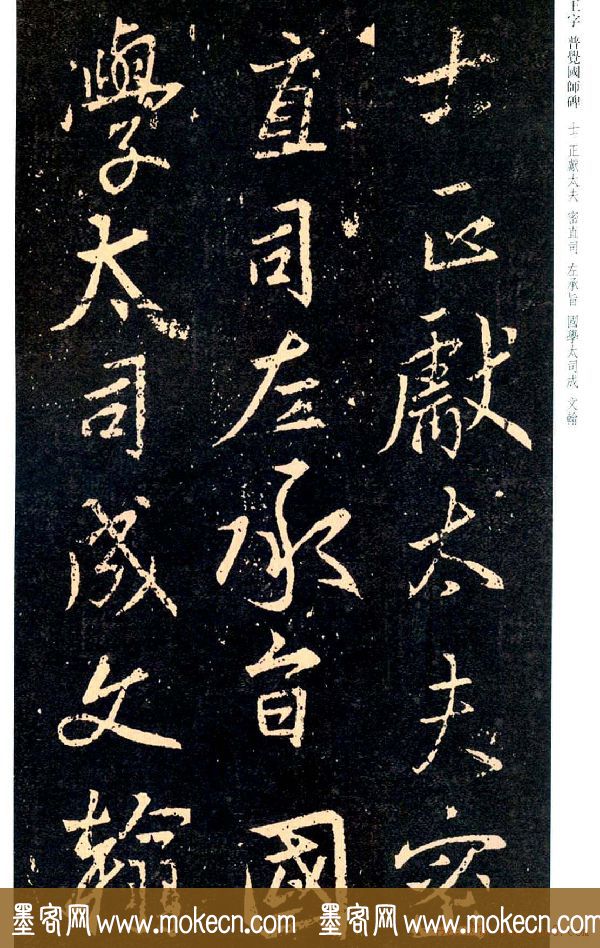 王字 普覺國師碑 士 正獻太夫 密直司 左承旨 國學太司成 文翰
士正獻太夫密
直司左承旨國
學太司成文翰
墨客网 www.mokecn.com 墨客网 www.mokecn.com